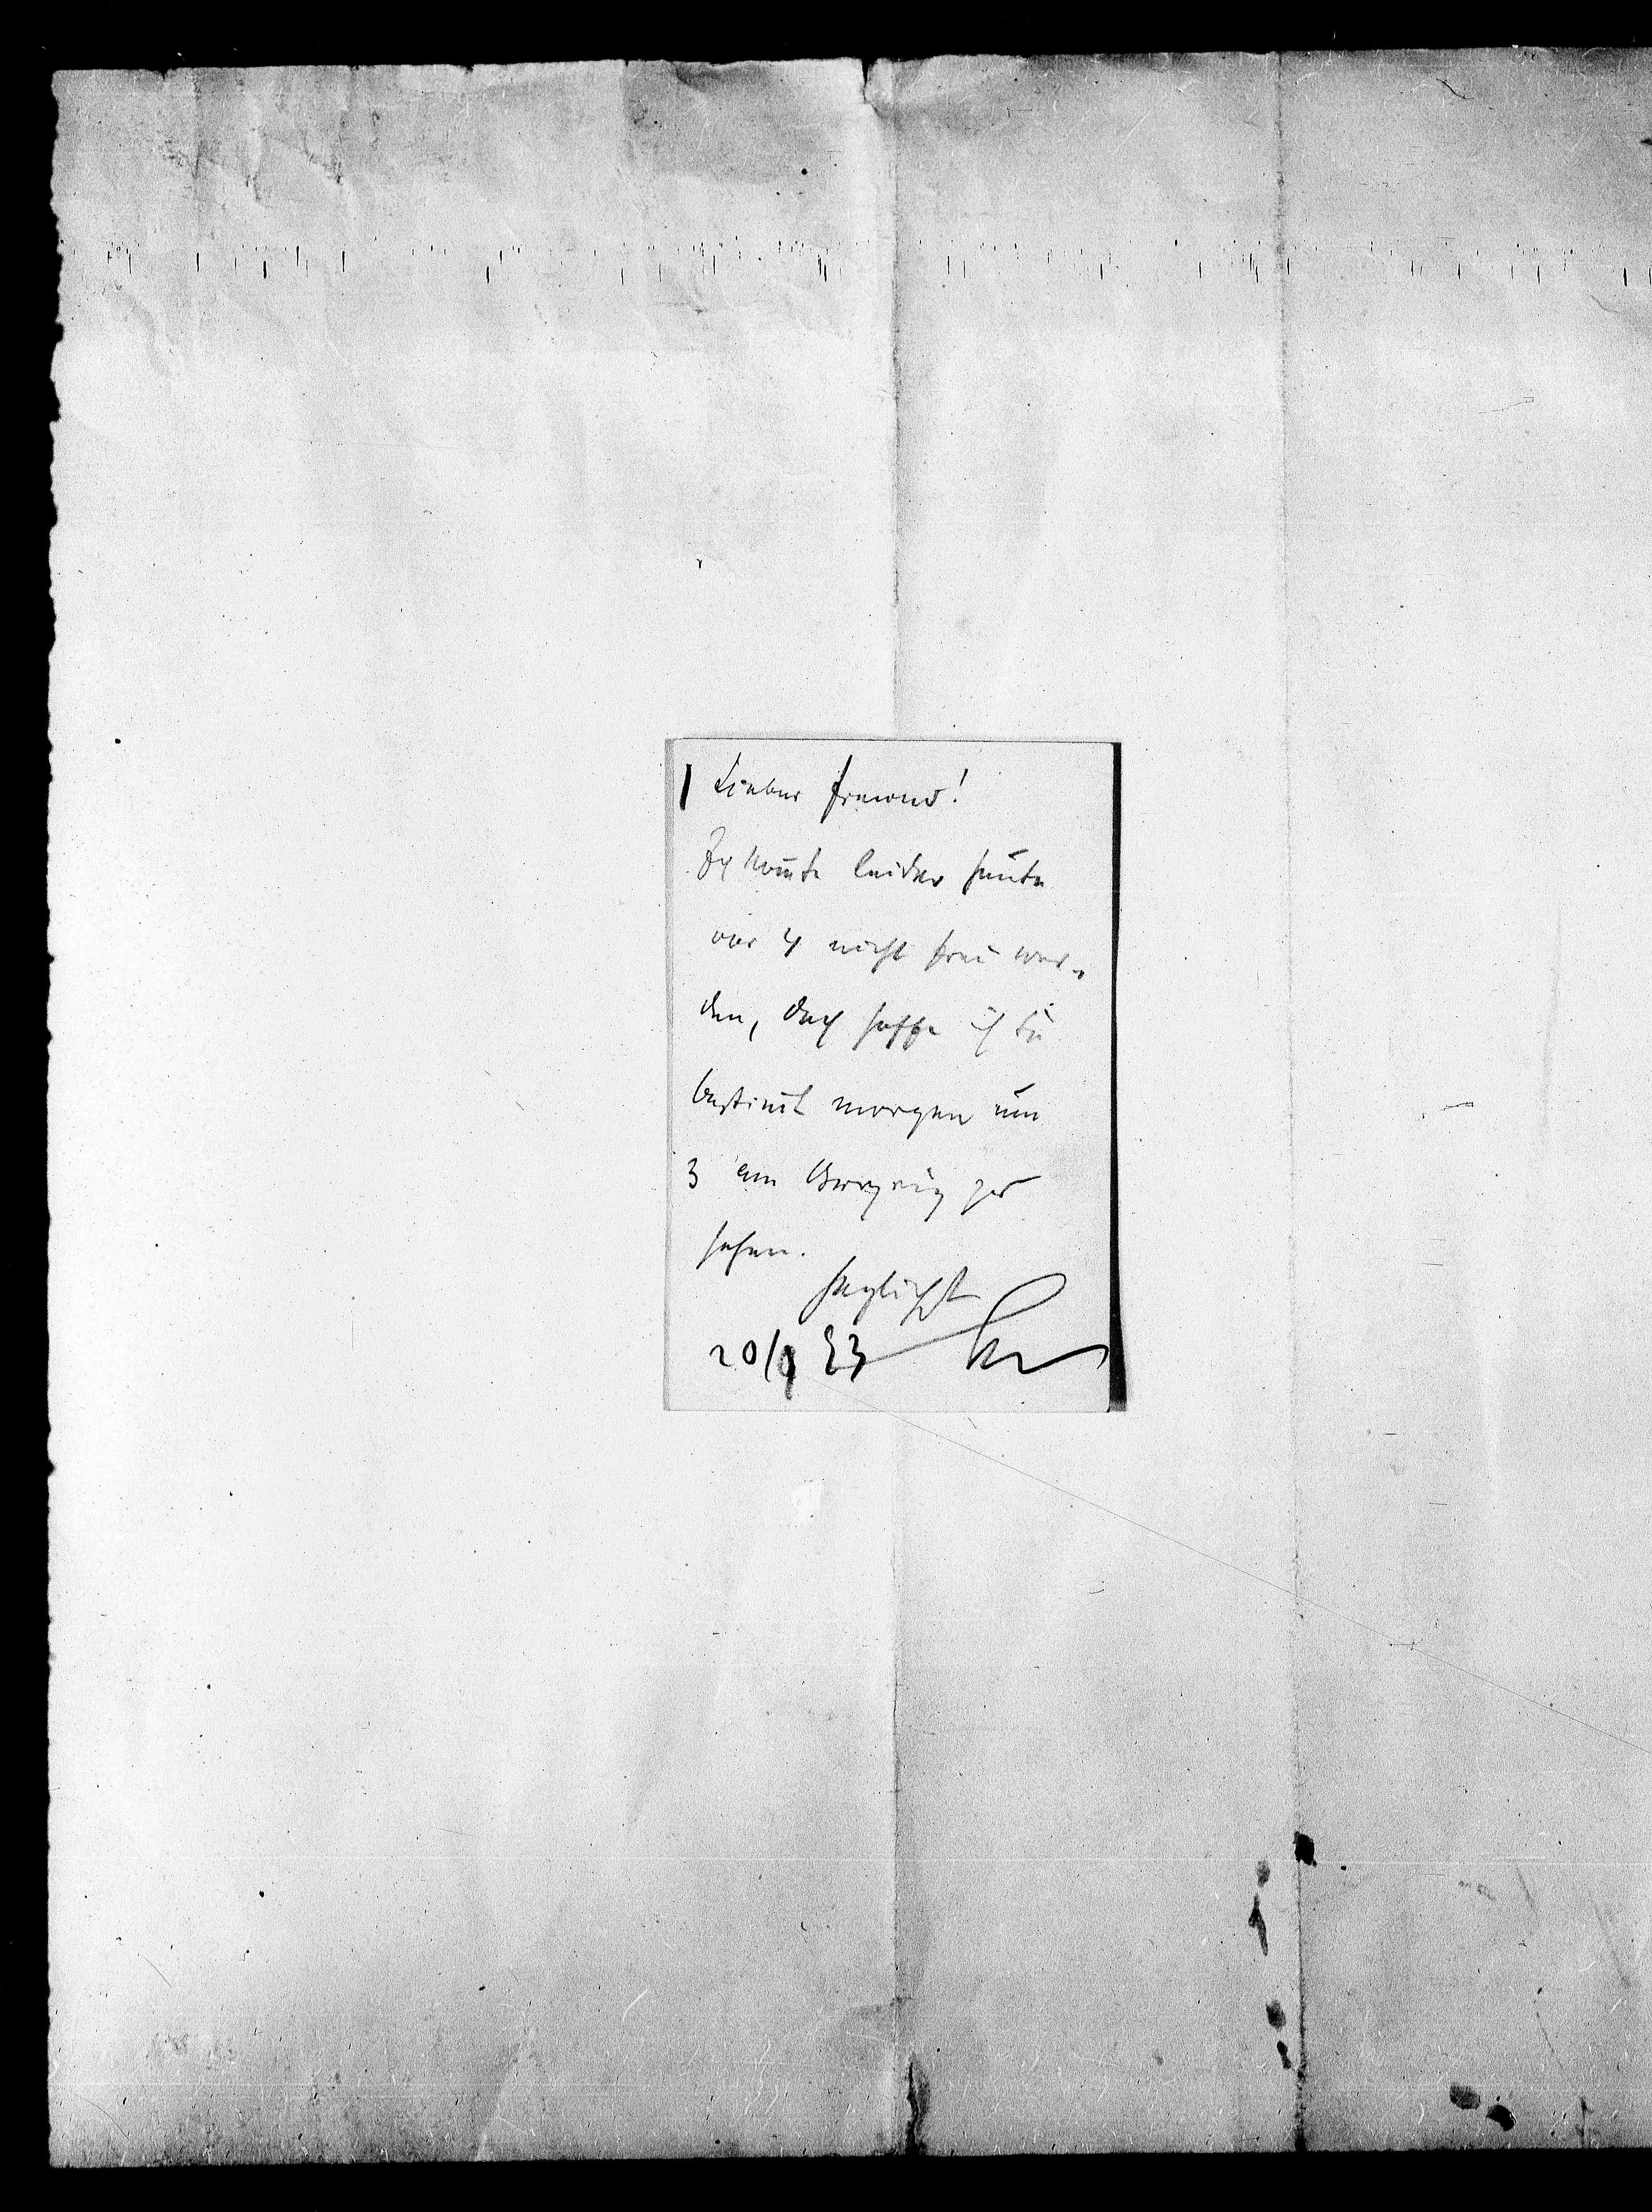 Lieber Freund!
Ich konnte leider heute
vor 4 nicht frei wer-
den, doch hoffe ich Sie
bestimt morgen um
3 am Burgring zu
sehen.
Herzlichst
20/ 93